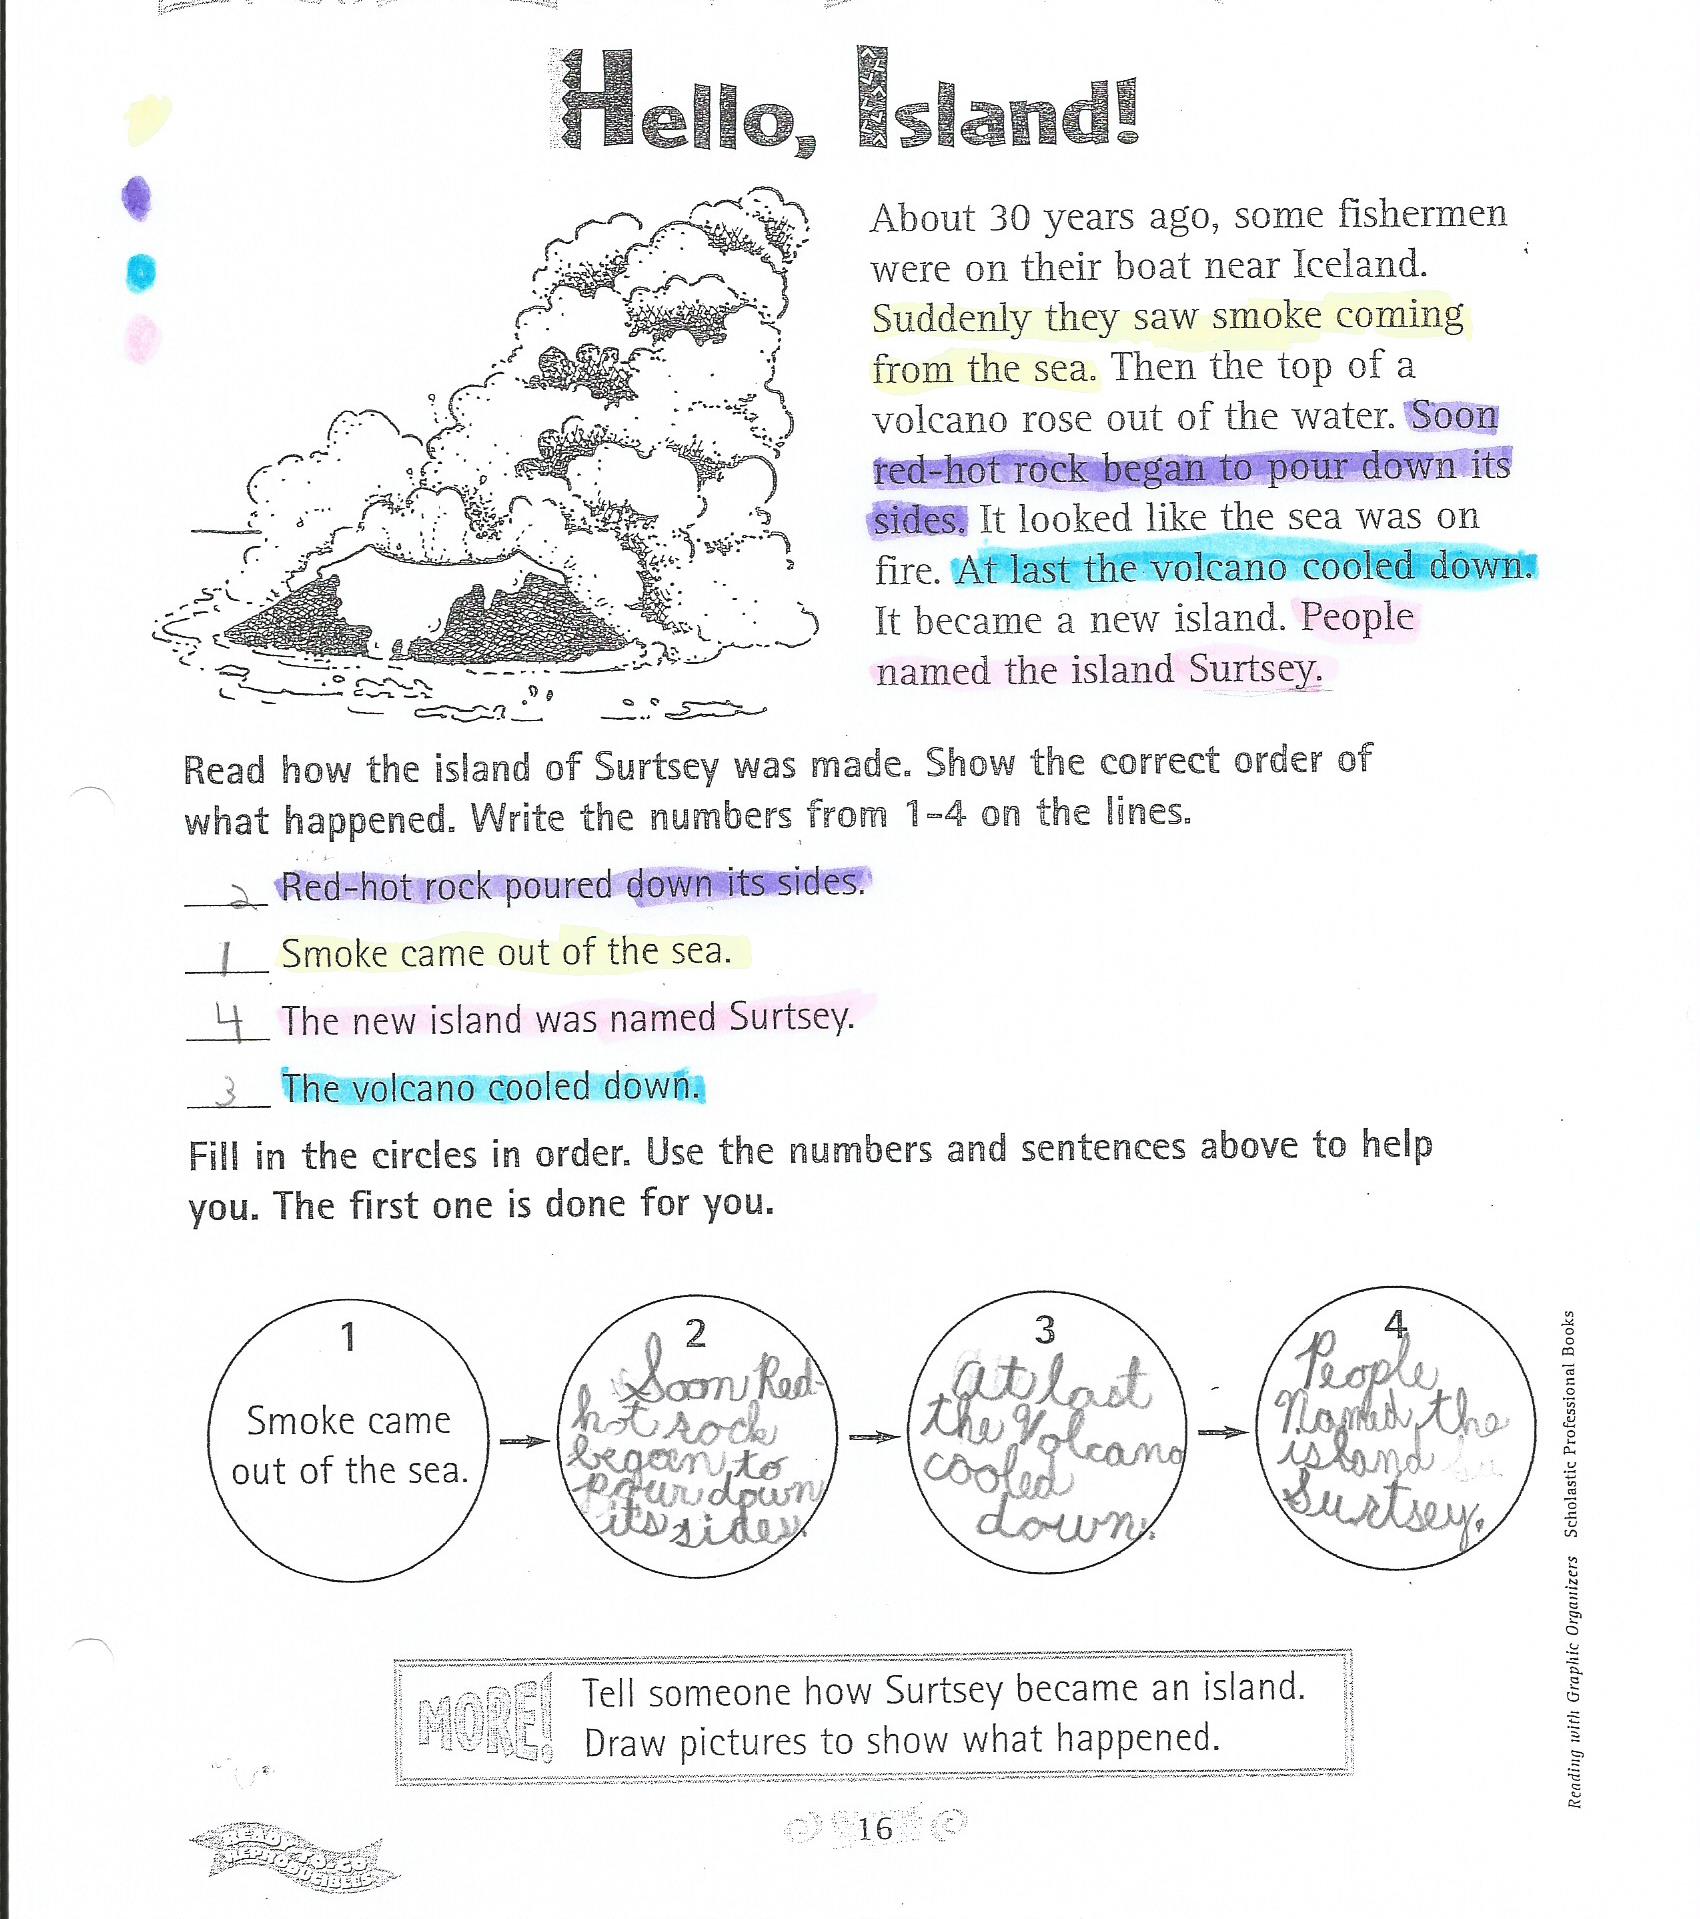 Hello, Island!
About 30 years ago, some fishermen
were on their boat near Iceland.
Suddenly they saw smoke coming
from the sea. Then the top of a
volcano rose out of the water. Soon
red-hot rock began to pour down its
sides. It looked like the sea was on
fire. At last the volcano cooled down.
It became a new island. People
named the island Surtsey.
Read how the island of Surtsey was made. Show the correct order of
what happened. Write the numbers from 1-4 on the lines.
2 Red-hot rock poured down its sides.
1 Smoke came out of the sea.
4 The new island was named Surtsey.
3 The volcano cooled down.
Fill in the circles in order. Use the numbers and sentences above to help
you. The first one is done for you.
1
Smoke came
out of the sea.
2
Soon Red-
hot rock
began to
pour down
its sides.
3
At last
the Volcano
cooled
down.
4
People
Named the
island
Surtsey.
MORE!
Tell someone how Surtsey became an island.
Draw pictures to show what happened.
Reading with Graphic Organizers Scholastic Professional Books
16
READY-TO-GO
REPRODUCIBLES